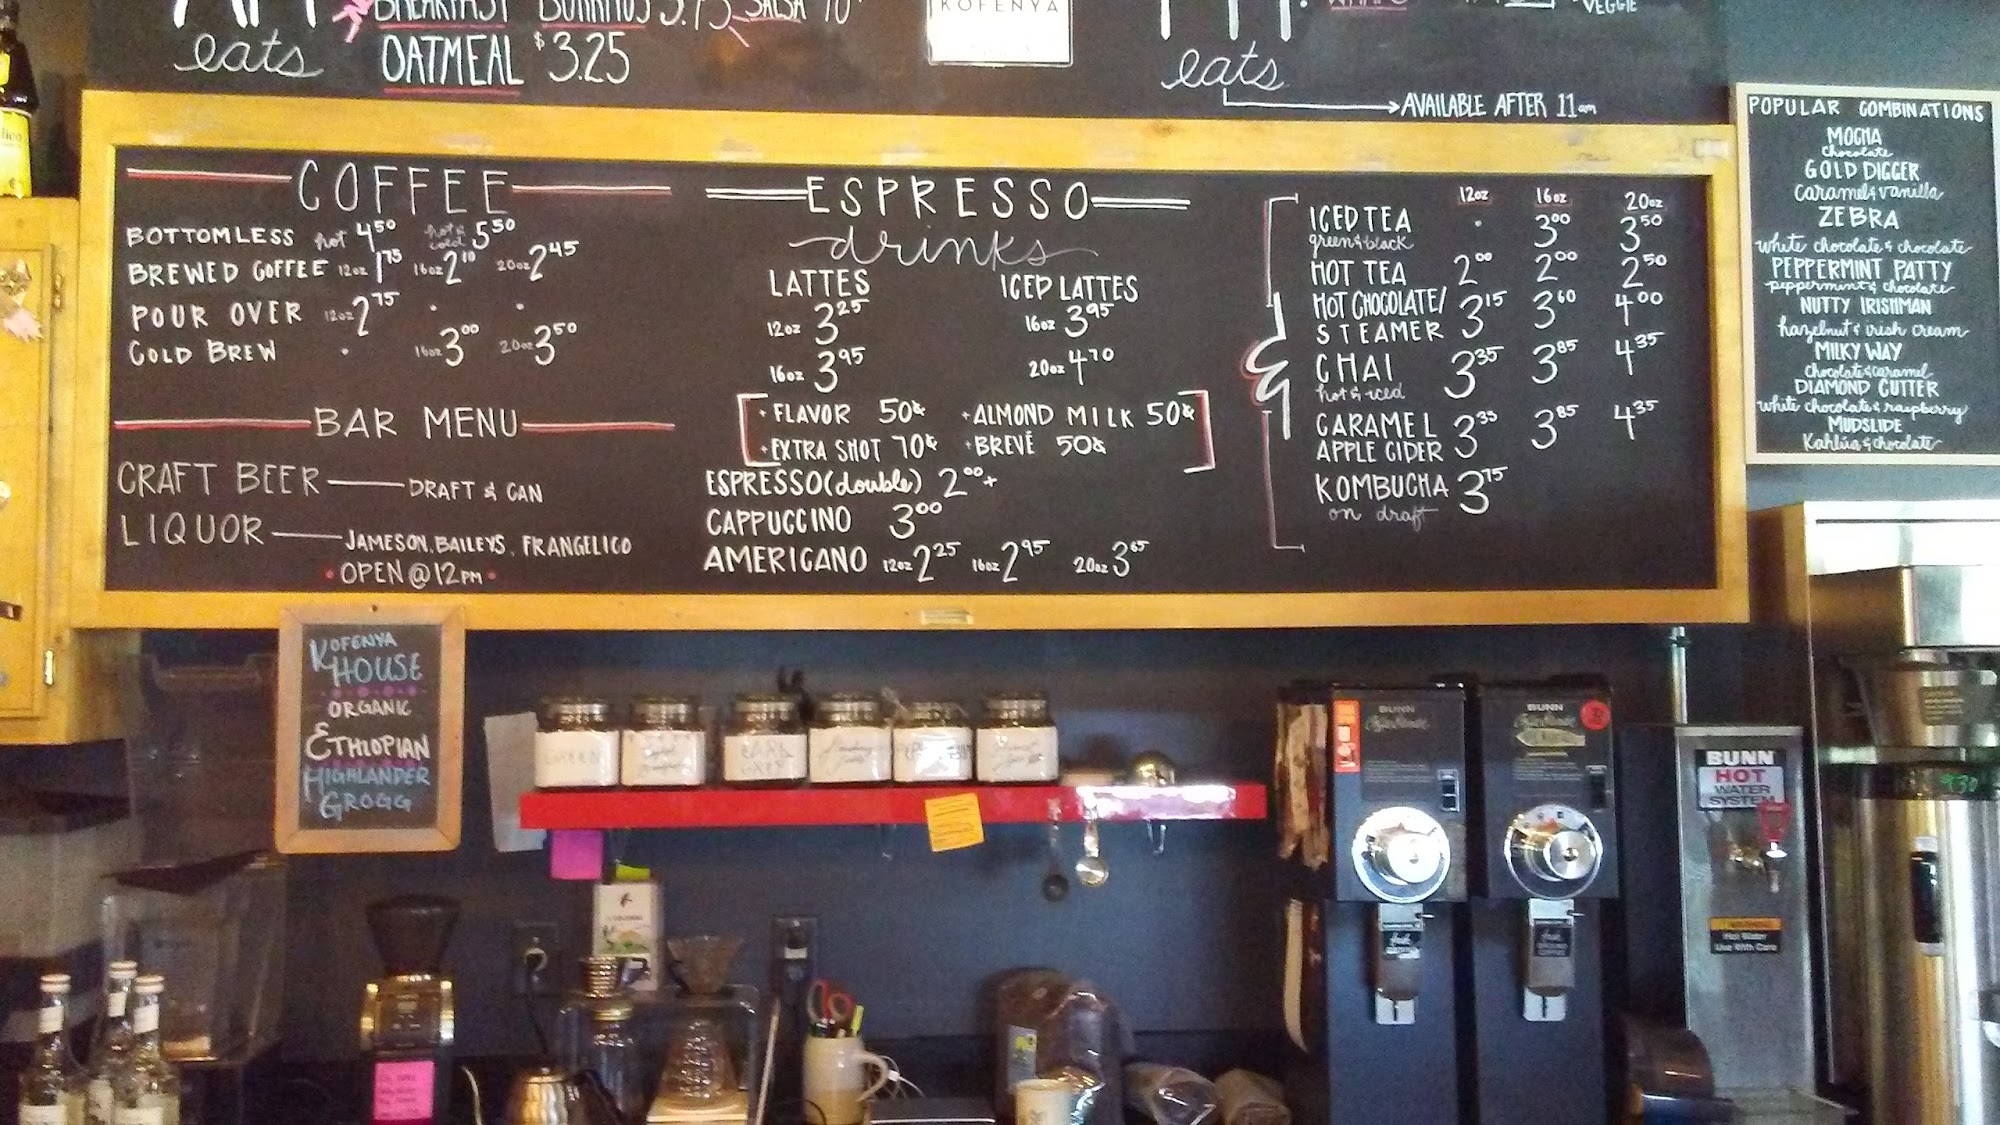 eats
BREAKFAST BURRITOS 3.75 SALSA
OATMEAL $3.25
KOFENYA
eats
VEGGIE
AVAILABLE AFTER 11am
COFFEE
BOTTOMLESS hot 4.50 hot & cold 5.50
BREWED COFFEE 12oz 1.75 16oz 2.10 20oz 2.45
POUR OVER 12oz 2.75 · ·
COLD BREW · 16oz 3.00 20oz 3.50
BAR MENU
CRAFT BEER — DRAFT & CAN
LIQUOR — JAMESON, BAILEYS, FRANGELICO
• OPEN @ 12PM •
ESPRESSO
drinks
LATTES
12oz 3.25
16oz 3.95
ICED LATTES
16oz 3.95
20oz 4.70
+ FLAVOR 50¢ + ALMOND MILK 50¢
+ EXTRA SHOT 70¢ + BREVÉ 50¢
ESPRESSO (double) 2.00+
CAPPUCCINO 3.00
AMERICANO 12oz 2.25 16oz 2.95 20oz 3.65
&
12oz 16oz 20oz
ICED TEA · 3.00 3.50
green & black
HOT TEA 2.00 2.00 2.50
HOT CHOCOLATE/
STEAMER 3.15 3.60 4.00
CHAI 3.35 3.85 4.35
hot & iced
CARAMEL
APPLE CIDER 3.35 3.85 4.35
KOMBUCHA 3.75
on draft
POPULAR COMBINATIONS
MOCHA
chocolate
GOLD DIGGER
caramel & vanilla
ZEBRA
white chocolate & chocolate
PEPPERMINT PATTY
peppermint & chocolate
NUTTY IRISHMAN
hazelnut & irish cream
MILKY WAY
chocolate & caramel
DIAMOND CUTTER
white chocolate & raspberry
MUDSLIDE
Kahlúa & chocolate
KOFENYA
HOUSE
ORGANIC
ETHIOPIAN
HIGHLANDER
GROGG
GREEN
EARL
GREY
BUNN
BUNN
BUNN
HOT
WATER
SYSTEM
Hot Water
Use With Care